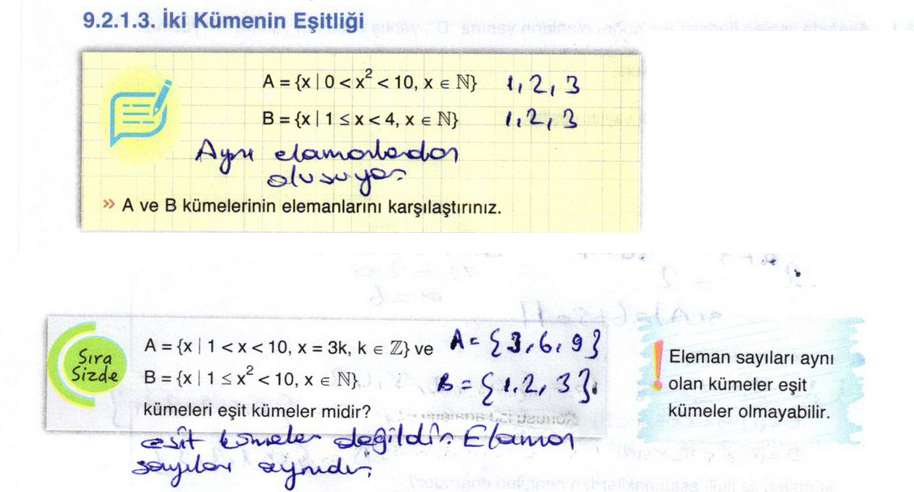 9.2.1.3. İki Kümenin Eşitliği
A = {x | 0 < x² < 10, x ∈ ℕ} 1, 2, 3
B = {x | 1 ≤ x < 4, x ∈ ℕ} 1, 2, 3
Aynı elamanlardan
oluşuyor
» A ve B kümelerinin elemanlarını karşılaştırınız.
Sıra
Sizde
A = {x | 1 < x < 10, x = 3k, k ∈ ℤ} ve A = {3, 6, 9}
B = {x | 1 ≤ x² < 10, x ∈ ℕ} B = {1, 2, 3}.
kümeleri eşit kümeler midir?
eşit kümeler değildir. Elaman
sayıları aynıdır,
! Eleman sayıları aynı
olan kümeler eşit
kümeler olmayabilir.